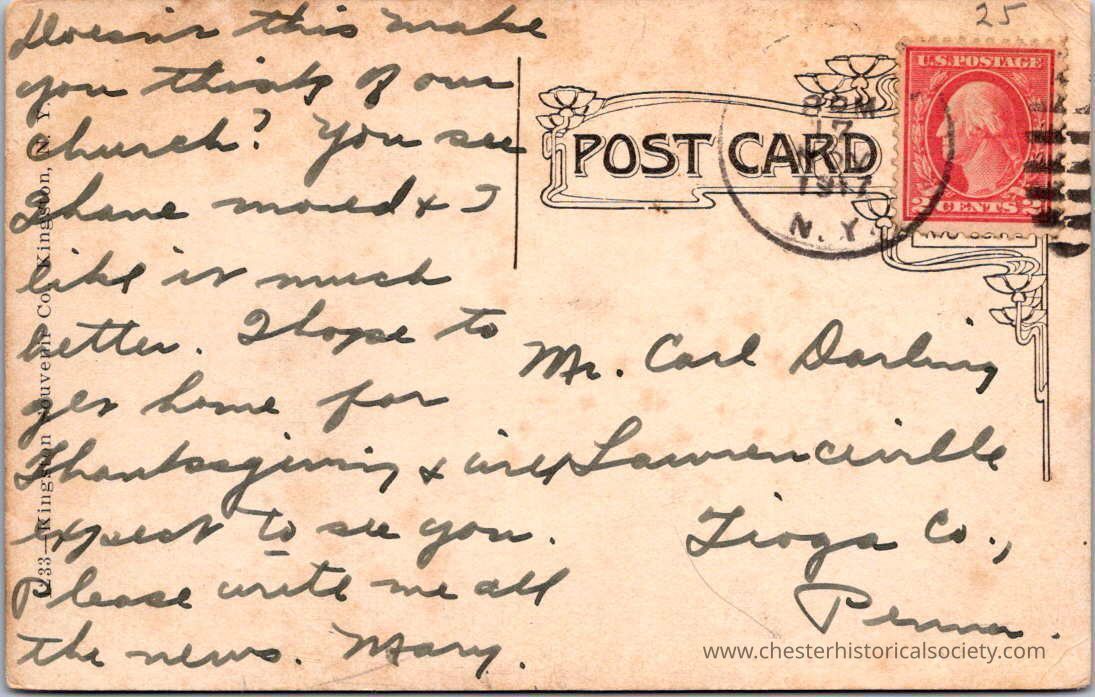 Doesn't this make
you think of our
church? You see
I have moved & I
like it much
better. I hope to
get home for
Thanksgiving & will
expect to see you.
Please write me all
the news. Mary.
1233—Kingston Souvenir Co., Kingston, N. Y.
25
POST CARD
U.S. POSTAGE
2 CENTS 2
PM
17
N. Y.
Mr. Carl Darling
Lawrenceville
Tioga Co.,
Penna.
www.chesterhistoricalsociety.com